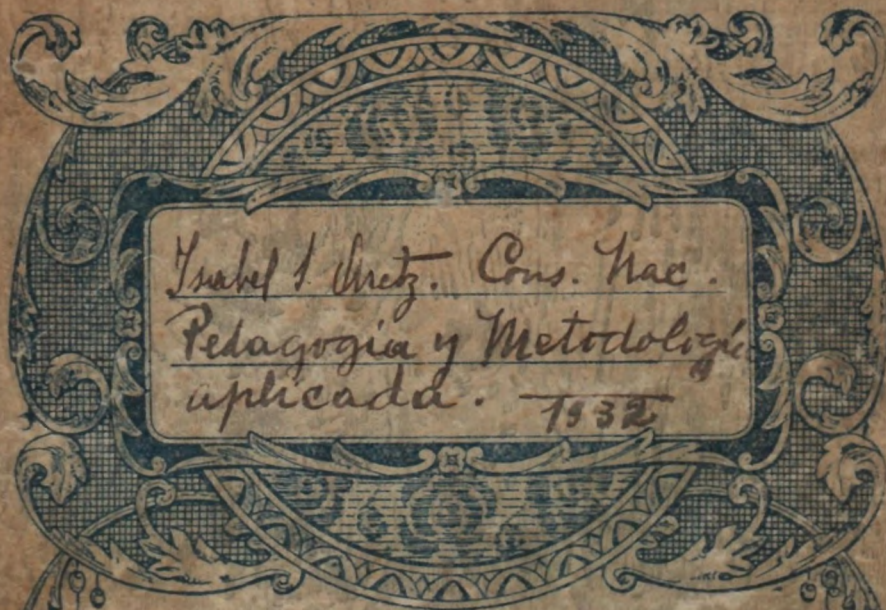 Isabel J. Aretz. Cons. Nac.
Pedagogía y Metodología
aplicada. 1932